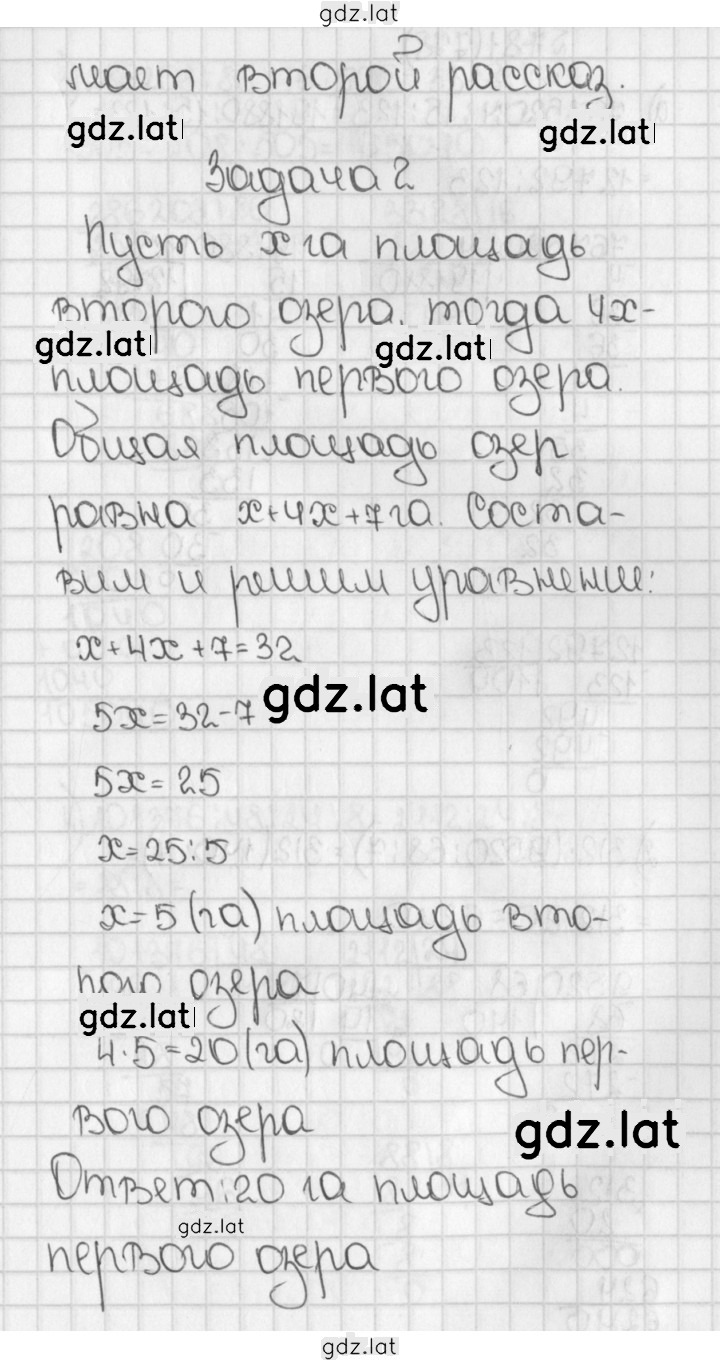 gdz.lat
мает второй рассказ.
gdz.lat gdz.lat
Задача 2
Пусть х га площадь
второго озера. тогда 4х-
gdz.lat gdz.lat
площадь первого озера.
Общая площадь озер
равна х+4х+7 га. Соста-
вим и решим уравнение:
х+4х+7=32
gdz.lat
5х=32-7
5х=25
х=25:5
х=5 (га) площадь вто-
рого озера
gdz.lat
4·5=20(га) площадь пер-
вого озера
gdz.lat
Ответ:20 га площадь
gdz.lat
первого озера
gdz.lat